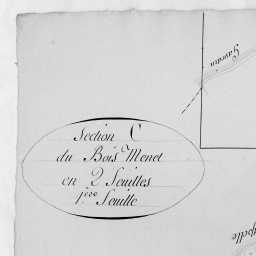 Section C
du Bois Menet
en 2 Feuilles
1ère Feuille